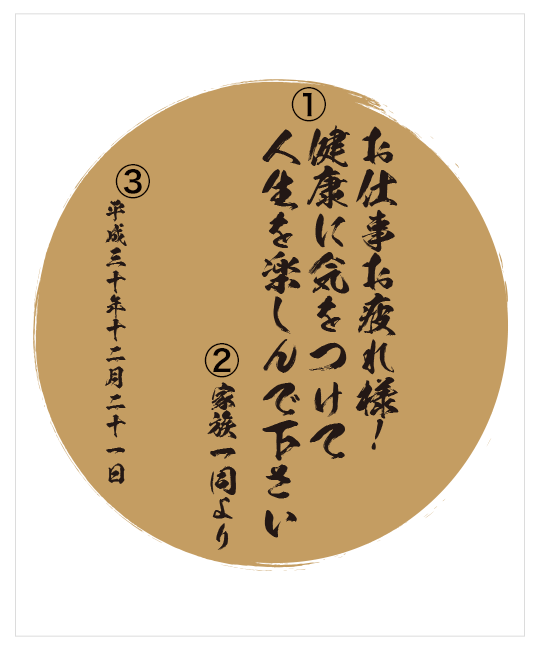 ①
お仕事お疲れ様!
健康に気をつけて
人生を楽しんで下さい
②
家族一同より
③
平成三十年十二月二十一日